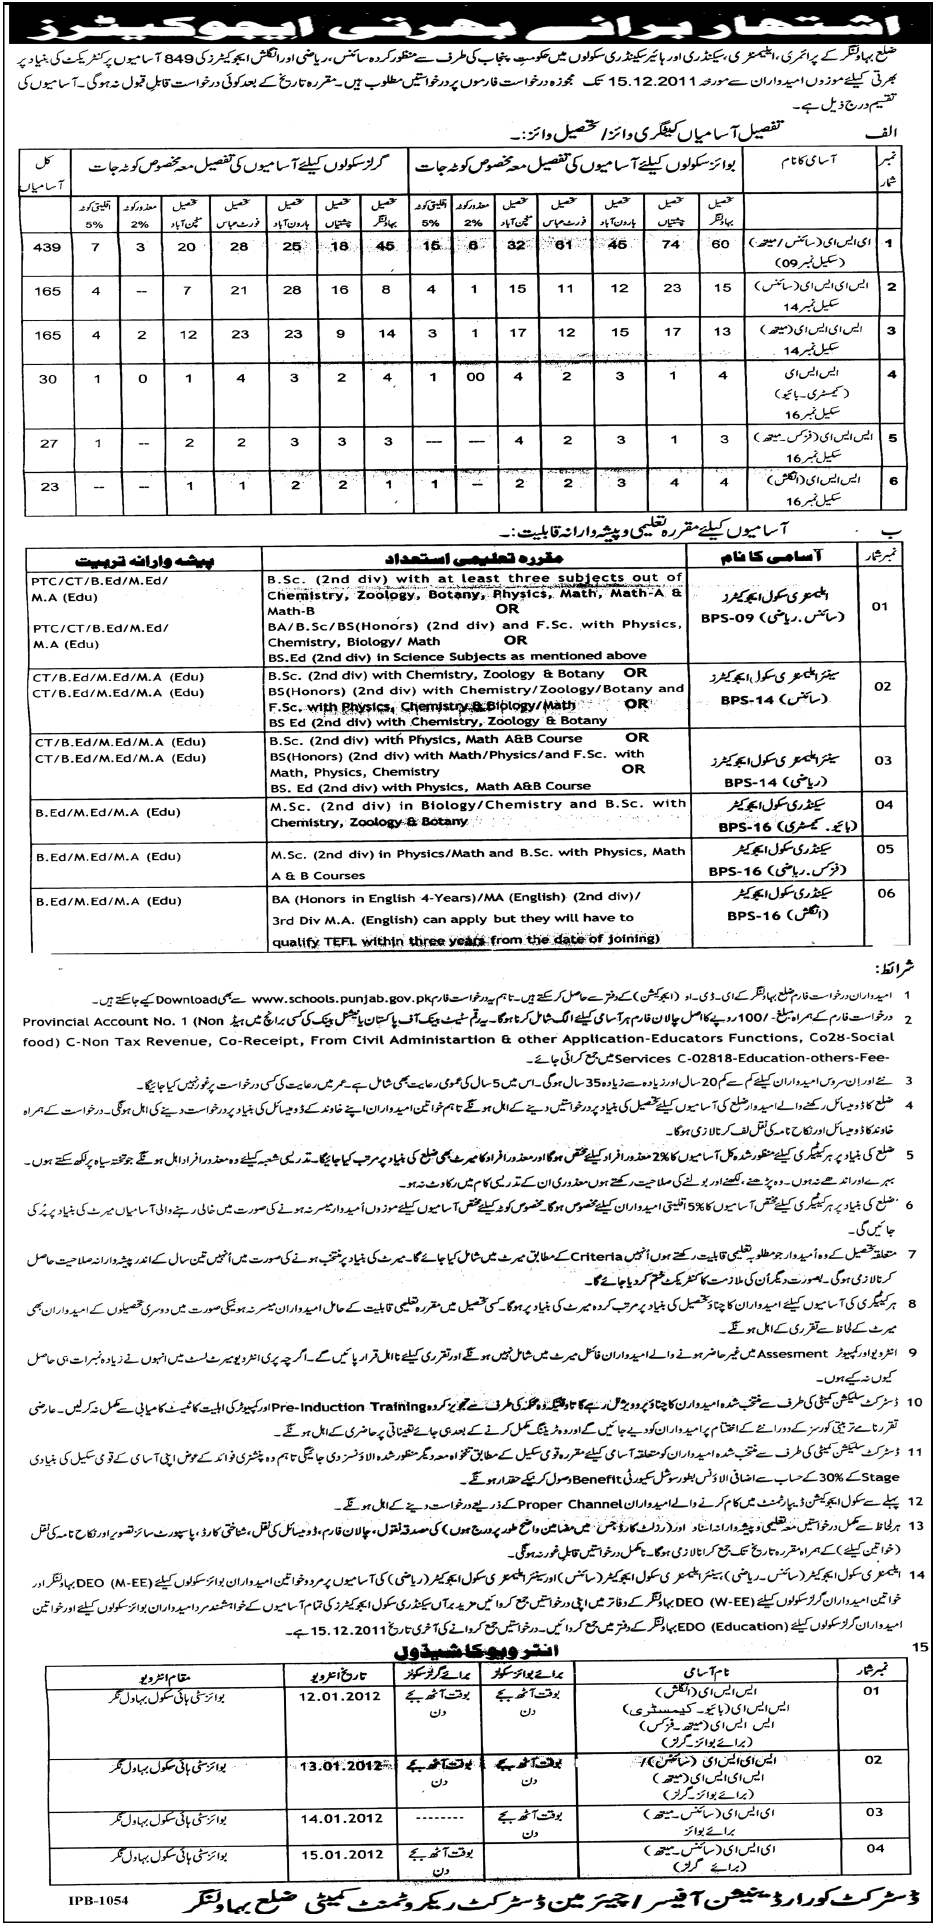 اشتہار برائے بھرتی ایجوکیٹرز
ضلع بہاولنگر کے پرائمری، ایلیمنٹری، سیکنڈری اور ہائیر سیکنڈری سکولوں میں حکومت پنجاب کی طرف سے منظور کردہ سائنس، ریاضی اور انگلش ایجوکیٹرز کی 849 آسامیوں پر کنٹریکٹ کی بنیاد پر
بھرتی کیلئے موزوں امیدواران سے مورخہ 15.12.2011 تک مجوزہ درخواست فارموں پر درخواستیں مطلوب ہیں۔ مقررہ تاریخ کے بعد کوئی درخواست قابل قبول نہ ہوگی۔ آسامیوں کی
تقسیم درج ذیل ہے۔
الف تفصیل آسامیاں کیٹگری وائز / تحصیل وائز:۔
نمبر شمار آسامی کا نام بوائز سکولوں کیلئے آسامیوں کی تفصیل معہ مخصوص کوٹہ جات گرلز سکولوں کیلئے آسامیوں کی تفصیل معہ مخصوص کوٹہ جات کل آسامیاں
تحصیل بہاولنگر تحصیل چشتیاں تحصیل ہارون آباد تحصیل فورٹ عباس تحصیل منچن آباد معذور کوٹہ 2% اقلیتی کوٹہ 5% تحصیل بہاولنگر تحصیل چشتیاں تحصیل ہارون آباد تحصیل فورٹ عباس تحصیل منچن آباد معذور کوٹہ 2% اقلیتی کوٹہ 5%
1 ای ایس ای (سائنس / میتھ) (سکیل نمبر 09) 60 74 45 61 32 6 15 45 18 25 28 20 3 7 439
2 ایس ای ایس ای (سائنس) سکیل نمبر 14 15 23 12 11 15 1 4 8 16 28 21 7 -- 4 165
3 ایس ای ایس ای (میتھ) سکیل نمبر 14 13 17 15 12 17 1 3 14 9 23 23 12 2 4 165
4 ایس ایس ای (کیمسٹری۔ بائیو) سکیل نمبر 16 4 1 3 2 4 00 1 4 2 3 4 1 0 1 30
5 ایس ایس ای (فزکس۔ میتھ) سکیل نمبر 16 3 1 3 2 4 --- --- 3 3 3 2 2 -- 1 27
6 ایس ایس ای (انگلش) سکیل نمبر 16 4 4 3 2 2 -- 1 1 2 2 1 1 -- -- 23
ب آسامیوں کیلئے مقررہ تعلیمی و پیشہ وارانہ قابلیت:۔
نمبر شمار آسامی کا نام مقررہ تعلیمی استعداد پیشہ وارانہ تربیت
01 ایلیمنٹری سکول ایجوکیٹرز (سائنس۔ ریاضی) BPS-09
B.Sc. (2nd div) with at least three subjects out of
Chemistry, Zoology, Botany, Physics, Math, Math-A &
Math-B OR
BA/B.Sc/BS(Honors) (2nd div) and F.Sc. with Physics,
Chemistry, Biology/ Math OR
BS.Ed (2nd div) in Science Subjects as mentioned above
PTC/CT/B.Ed/M.Ed/
M.A (Edu)
PTC/CT/B.Ed/M.Ed/
M.A (Edu)
02 سینئر ایلیمنٹری سکول ایجوکیٹرز (سائنس) BPS-14
B.Sc. (2nd div) with Chemistry, Zoology & Botany OR
BS(Honors) (2nd div) with Chemistry/Zoology/Botany and
F.Sc. with Physics, Chemistry & Biology/Math OR
BS Ed (2nd div) with Chemistry, Zoology & Botany
CT/B.Ed/M.Ed/M.A (Edu)
CT/B.Ed/M.Ed/M.A (Edu)
03 سینئر ایلیمنٹری سکول ایجوکیٹرز (ریاضی) BPS-14
B.Sc. (2nd div) with Physics, Math A&B Course OR
BS(Honors) (2nd div) with Math/Physics/and F.Sc. with
Math, Physics, Chemistry OR
BS. Ed (2nd div) with Physics, Math A&B Course
CT/B.Ed/M.Ed/M.A (Edu)
CT/B.Ed/M.Ed/M.A (Edu)
04 سیکنڈری سکول ایجوکیٹر (بائیو۔ کیمسٹری) BPS-16
M.Sc. (2nd div) in Biology/Chemistry and B.Sc. with
Chemistry, Zoology & Botany
B.Ed/M.Ed/M.A (Edu)
05 سیکنڈری سکول ایجوکیٹر (فزکس۔ ریاضی) BPS-16
M.Sc. (2nd div) in Physics/Math and B.Sc. with Physics, Math
A & B Courses
B.Ed/M.Ed/M.A (Edu)
06 سیکنڈری سکول ایجوکیٹر (انگلش) BPS-16
BA (Honors in English 4-Years)/MA (English) (2nd div)/
3rd Div M.A. (English) can apply but they will have to
qualify TEFL within three years from the date of joining)
B.Ed/M.Ed/M.A (Edu)
شرائط:
1 امیدواران درخواست فارم ضلع بہاولنگر کے ای۔ ڈی۔ او (ایجوکیشن) کے دفتر سے حاصل کر سکتے ہیں۔ تاہم یہ درخواست فارم www.schools.punjab.gov.pk سے بھی Download کیے جا سکتے ہیں۔
2 درخواست فارم کے ہمراہ مبلغ -/100 روپے کا اصل چالان فارم ہر آسامی کیلئے الگ شامل کرنا ہوگا۔ یہ رقم سٹیٹ بینک آف پاکستان یا نیشنل بینک کی کسی برانچ میں ہیڈ Provincial Account No. 1 (Non
food) C-Non Tax Revenue, Co-Receipt, From Civil Administartion & other Application-Educators Functions, Co28-Social
Services C-02818-Education-others-Fee- میں جمع کرائی جائے۔
3 نئے اور ان سروس امیدواران کیلئے کم سے کم 20 سال اور زیادہ سے زیادہ 35 سال ہوگی۔ اس میں 5 سال کی عمومی رعایت بھی شامل ہے۔ عمر میں رعایت کی کسی درخواست پر غور نہیں کیا جائیگا۔
4 ضلع کا ڈومیسائل رکھنے والے امیدوار ضلع کی آسامیوں کیلئے تحصیل کی بنیاد پر درخواستیں دینے کے اہل ہونگے تاہم خواتین امیدواران اپنے خاوند کے ڈومیسائل کی بنیاد پر درخواست دینے کی اہل ہونگی۔ درخواست کے ہمراہ
خاوند کا ڈومیسائل اور نکاح نامہ کی نقل لف کرنا لازمی ہوگا۔
5 ضلع کی بنیاد پر ہر کیٹیگری کیلئے منظور شدہ کل آسامیوں کا 2% معذور افراد کیلئے مختص ہوگا اور معذور افراد کا میرٹ بھی ضلع کی بنیاد پر مرتب کیا جائیگا۔ تدریسی شعبہ کیلئے وہ معذور افراد اہل ہونگے جو تختہ سیاہ پر لکھ سکتے ہوں۔
بہرے اور اندھے نہ ہوں۔ وہ پڑھنے، لکھنے اور بولنے کی صلاحیت رکھتے ہوں معذوری ان کے تدریسی کام میں رکاوٹ نہ ہو۔
6 ضلع کی بنیاد پر ہر کیٹیگری کیلئے مختص آسامیوں کا 5% اقلیتی امیدواران کیلئے مخصوص ہوگا۔ مخصوص کوٹہ کیلئے مختص آسامیوں کیلئے موزوں اُمیدوار میسر نہ ہونے کی صورت میں خالی رہنے والی آسامیاں میرٹ کی بنیاد پر پُر کی
جائیں گی۔
7 متعلقہ تحصیل کے وہ اُمیدوار جو مطلوبہ تعلیمی قابلیت رکھتے ہوں اُنہیں Criteria کے مطابق میرٹ میں شامل کیا جائے گا۔ میرٹ کی بنیاد پر منتخب ہونے کی صورت میں اُنہیں تین سال کے اندر پیشہ وارانہ صلاحیت حاصل
کرنا لازمی ہوگی۔ بصورت دیگر اُن کی ملازمت کا کنٹریکٹ ختم کر دیا جائے گا۔
8 ہر کیٹیگری کی آسامیوں کیلئے امیدواران کا چناؤ تحصیل کی بنیاد پر مرتب کردہ میرٹ کی بنیاد پر ہوگا۔ کسی تحصیل میں مقررہ تعلیمی قابلیت کے حامل امیدواران میسر نہ ہونیکی صورت میں دوسری تحصیلوں کے امیدواران بھی
میرٹ کے لحاظ سے تقرری کے اہل ہونگے۔
9 انٹرویو اور کمپیوٹر Assesment میں غیر حاضر ہونے والے امیدواران فائنل میرٹ میں شامل نہیں ہونگے اور تقرری کیلئے نااہل قرار پائیں گے۔ اگرچہ پری انٹرویو میرٹ لسٹ میں انہوں نے زیادہ نمبرات ہی حاصل
کیوں نہ کیے ہوں۔
10 ڈسٹرکٹ سلیکشن کمیٹی کی طرف سے منتخب شدہ امیدواران کا چناؤ پروویژنل رہے گا تاوقتیکہ وہ محکمہ کی طرف سے تجویز کردہ Pre-Induction Training اور کمپیوٹر کی اہلیت کا ٹیسٹ کامیابی سے مکمل نہ کر لیں۔ عارضی
تقرر نامے تربیتی کورسز کے دورانئے کے اختتام پر امیدواران کو دیے جائیں گے اور وہ ٹریننگ مکمل کرنے کے بعد ہی جائے تعیناتی پر حاضری کے اہل ہونگے۔
11 ڈسٹرکٹ سلیکشن کمیٹی کی طرف سے منتخب شدہ امیدواران کو متعلقہ آسامی کیلئے مقررہ قومی سکیل کے مطابق تنخواہ معہ دیگر منظور شدہ الاؤنسز دی جائیگی تاہم وہ پنشنری فوائد کے عوض اپنی آسامی کے قومی سکیل کی بنیادی
Stage کے 30% کے حساب سے اضافی الاؤنس بطور سوشل سکیورٹی Benefit وصول کرنیکے حقدار ہونگے۔
12 پہلے سے سکول ایجوکیشن ڈیپارٹمنٹ میں کام کرنے والے امیدواران Proper Channel کے ذریعے درخواست دینے کے اہل ہونگے۔
13 ہر لحاظ سے مکمل درخواستیں معہ تعلیمی و پیشہ وارانہ اسناد اور (رزلٹ کارڈ جس میں مضامین واضح طور پر درج ہوں) کی مصدقہ نقول، چالان فارم، ڈومیسائل کی نقل، شناختی کارڈ، پاسپورٹ سائز تصویر اور نکاح نامہ کی نقل
(خواتین کیلئے) کے ہمراہ مقررہ تاریخ تک جمع کرانا لازمی ہوگا۔ نامکمل درخواستیں قابل غور نہ ہونگی۔
14 ایلیمنٹری سکول ایجوکیٹر (سائنس۔ ریاضی) سینئر ایلیمنٹری سکول ایجوکیٹر (سائنس) اور سینئر ایلیمنٹری سکول ایجوکیٹر (ریاضی) کی آسامیوں پر مرد و خواتین امیدواران بوائز سکولوں کیلئے DEO (M-EE) بہاولنگر اور
خواتین امیدواران گرلز سکولوں کیلئے DEO (W-EE) بہاولنگر کے دفاتر میں اپنی درخواستیں جمع کروائیں مزید برآں سیکنڈری سکول ایجوکیٹرز کی تمام آسامیوں کے خواہشمند مرد امیدواران بوائز سکولوں کیلئے اور خواتین
امیدواران گرلز سکولوں کیلئے EDO (Education) بہاولنگر کے دفتر میں جمع کروائیں۔ درخواستیں جمع کروانے کی آخری تاریخ 15.12.2011 ہے۔
15 انٹرویو کا شیڈول
نمبر شمار نام آسامی برائے بوائز سکولز برائے گرلز سکولز تاریخ انٹرویو مقام انٹرویو
01 ایس ایس ای (انگلش) ایس ایس ای (بائیو۔ کیمسٹری) ایس ایس ای (میتھ۔ فزکس) (برائے بوائز۔ گرلز) بوقت آٹھ بجے دن بوقت آٹھ بجے دن 12.01.2012 بوائز سٹی ہائی سکول بہاولنگر
02 ایس ای ایس ای (سائنس)/ ایس ای ایس ای (میتھ) (برائے بوائز۔ گرلز) بوقت آٹھ بجے دن بوقت آٹھ بجے دن 13.01.2012 بوائز سٹی ہائی سکول بہاولنگر
03 ای ایس ای (سائنس۔ میتھ) برائے بوائز بوقت آٹھ بجے دن -------- 14.01.2012 بوائز سٹی ہائی سکول بہاولنگر
04 ای ایس ای (سائنس۔ میتھ) (برائے گرلز) بوقت آٹھ بجے دن 15.01.2012 بوائز سٹی ہائی سکول بہاولنگر
ڈسٹرکٹ کوارڈینیشن آفیسر / چیئرمین ڈسٹرکٹ ریکروٹمنٹ کمیٹی ضلع بہاولنگر
IPB-1054